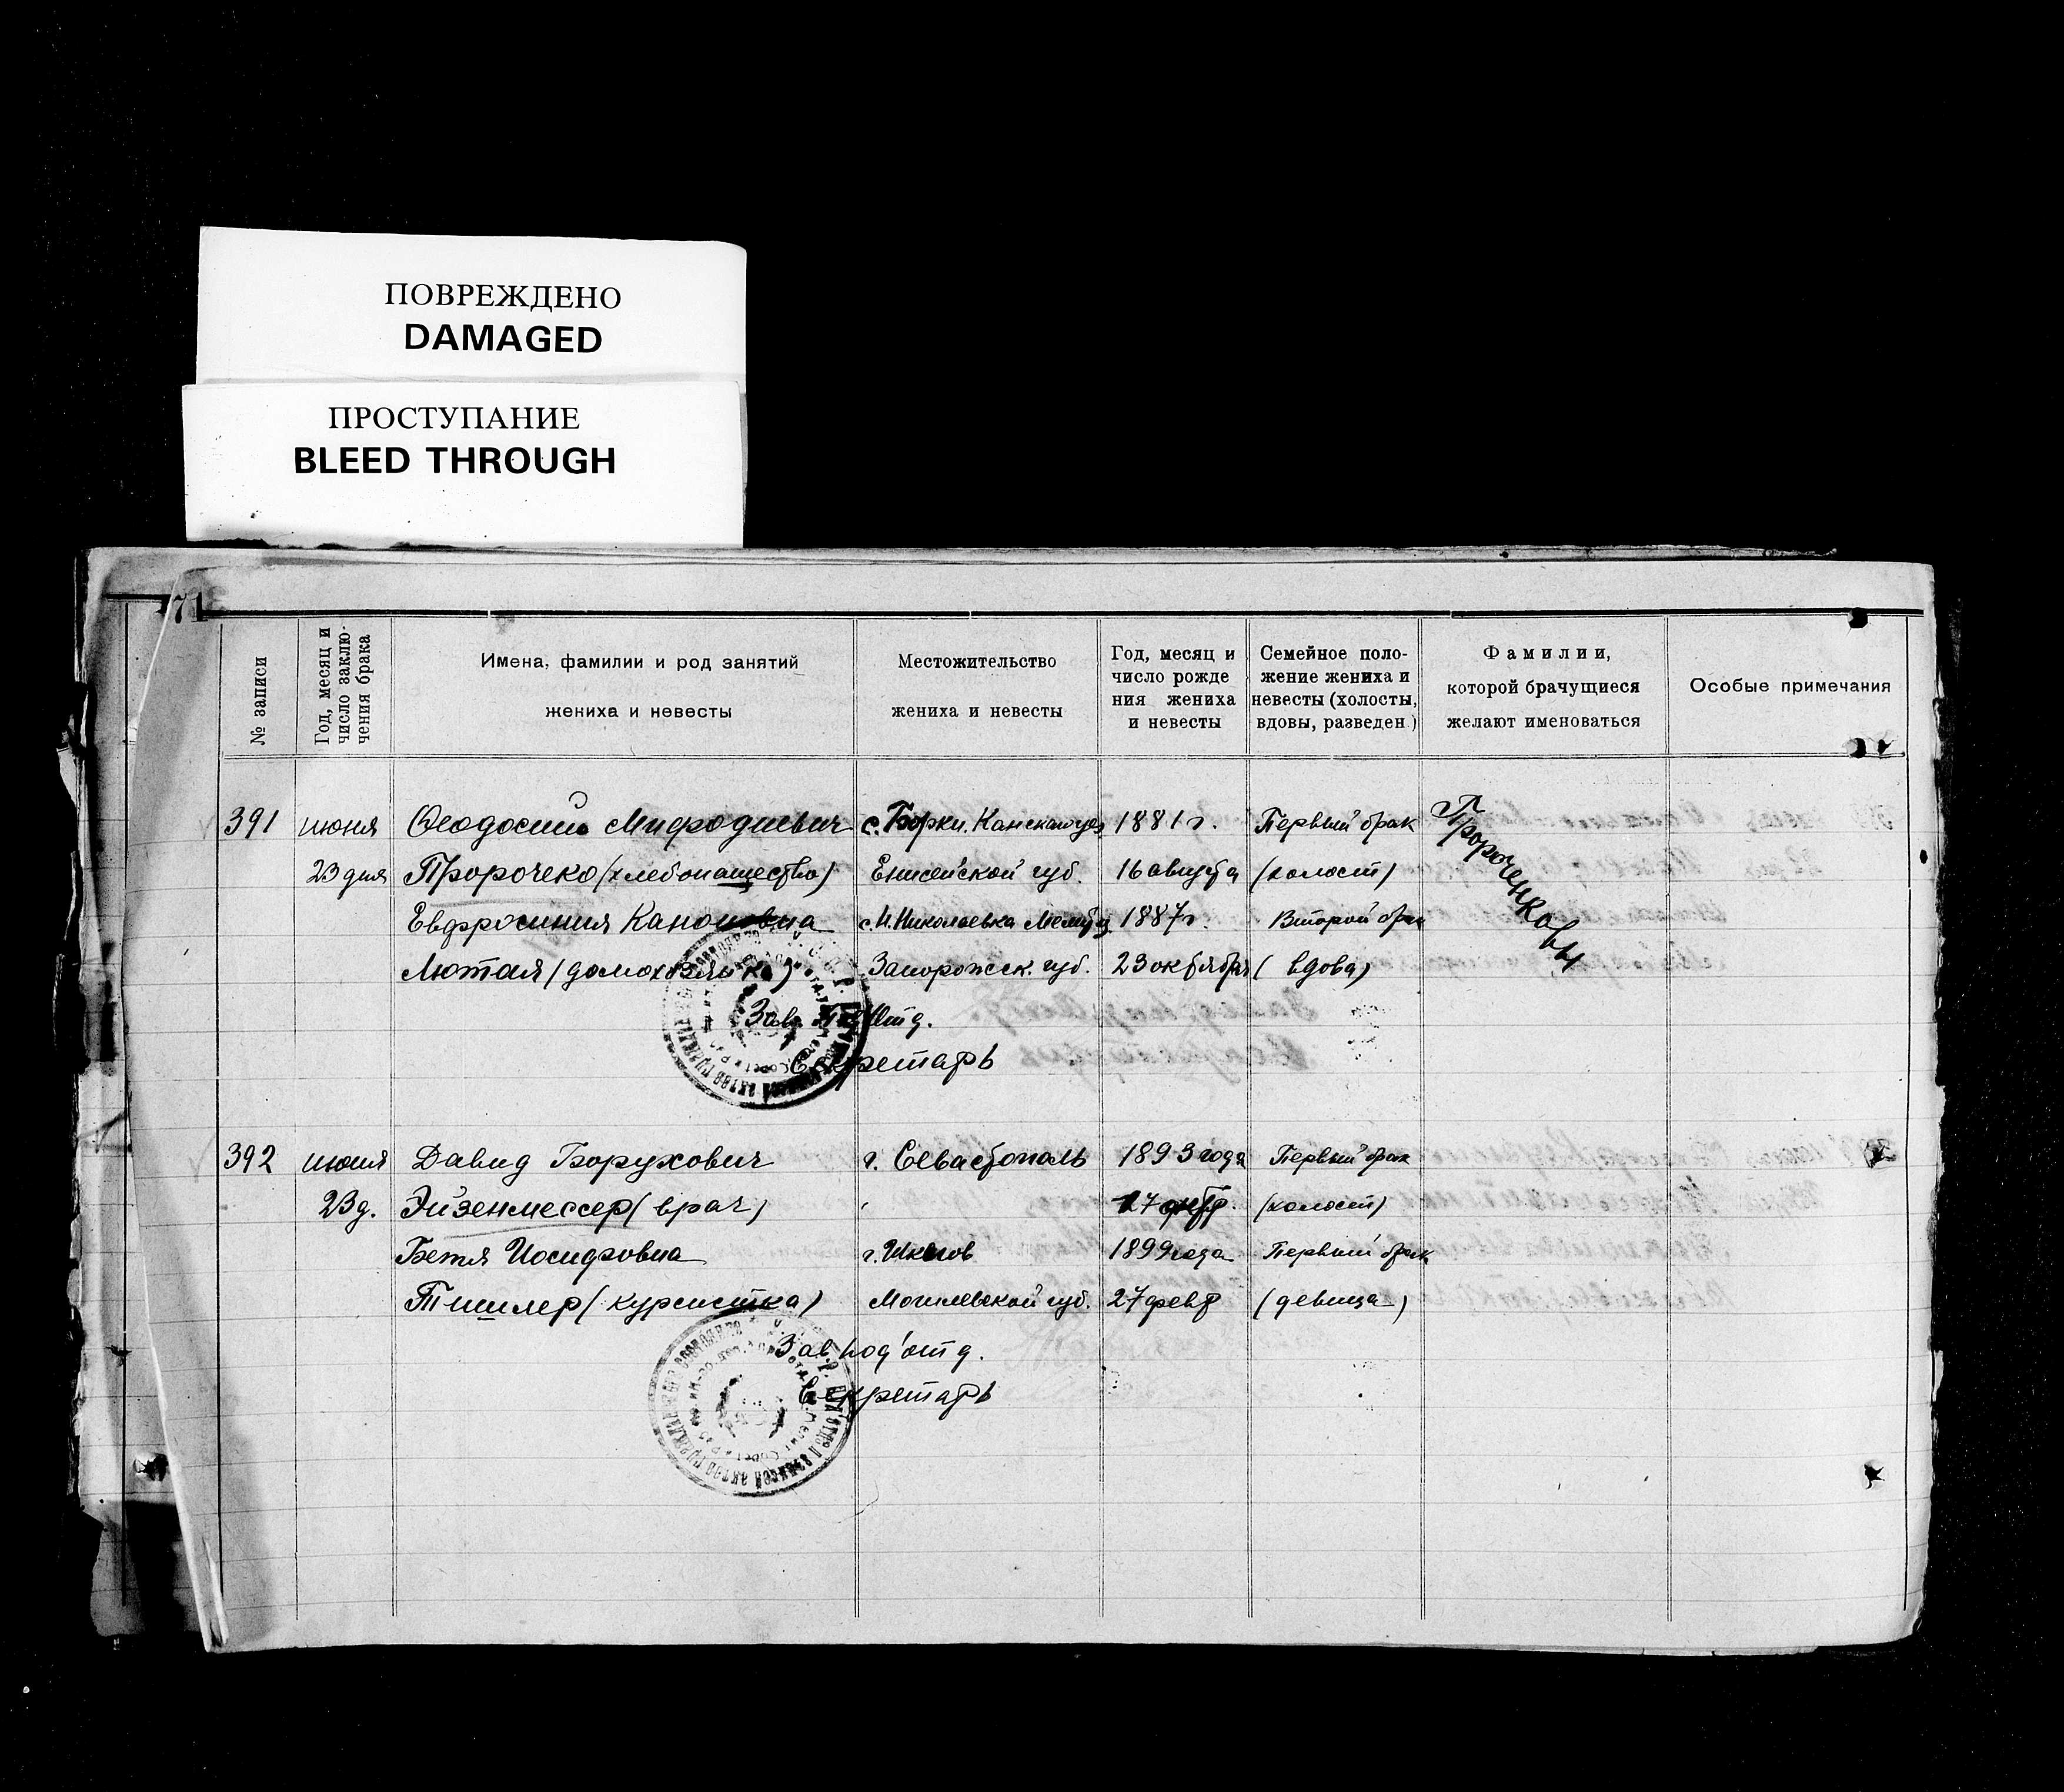 ПОВРЕЖДЕНО
DAMAGED
ПРОСТУПАНИЕ
BLEED THROUGH
71
№ записи
Год, месяц и число заклю-чения брака
Имена, фамилии и род занятий
жениха и невесты
Местожительство
жениха и невесты
Год, месяц и
число рожде
ния жениха
и невесты
Семейное поло-
жение жениха и
невесты (холосты,
вдовы, разведен.)
Фамилии,
которой брачущиеся
желают именоваться
Особые примечания
391 июня Феодосий Мифодиевич с. Борки. Канского уез 1881 г. Первый брак Пророченковы
23 дня Пророчеко (хлебопашество) Енисейской губ. 16 августа (холост)
Евфросиния Кановна с. Н. Николаевка 1887 г. Второй брак
Лютая (домохозяйка) Запорожск. губ. 23 октября (вдова)
Зав. П/Отд.
Секретарь
392 июня Давид Борухович г. Севастополь 1893 года Первый брак
23 д. Эйзенмессер (врач) 17 (холост)
Бетя Иосифовна г. Шклов 1899 года Первый брак
Тишлер (курсистка) Могилевской губ. 27 февр (девица)
Зав. под'отд.
Секретарь